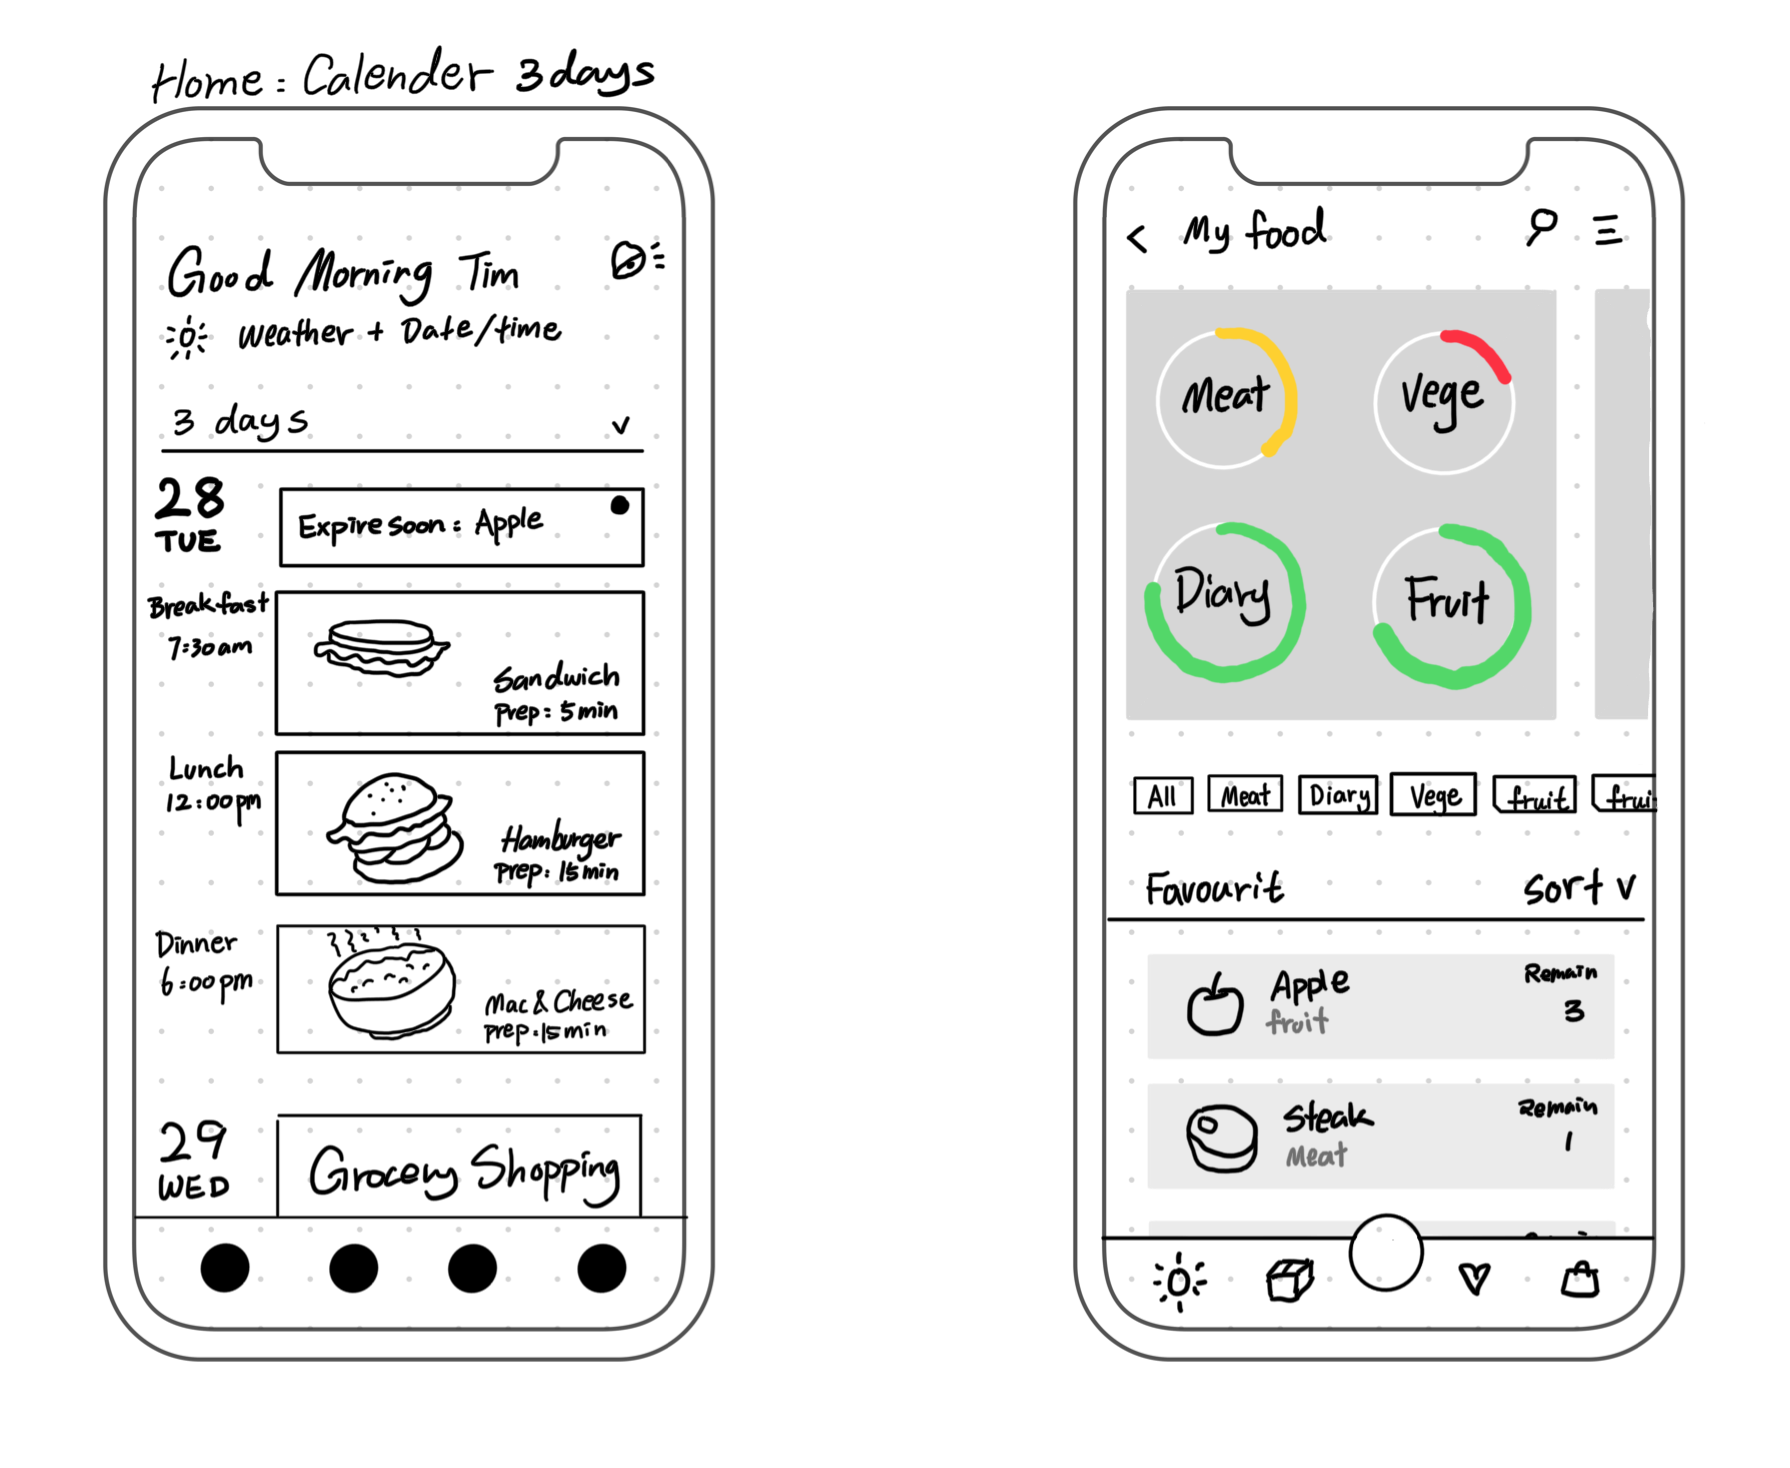 Home : Calender 3 days
Good Morning Tim
Weather + Date/time
3 days
28
TUE
Expire soon : Apple
Breakfast
7:30am
Sandwich
Prep: 5 min
Lunch
12:00pm
Hamburger
Prep: 15 min
Dinner
6:00pm
Mac & Cheese
Prep: 15 min
29
WED
Grocery Shopping
My food
Meat
Vege
Diary
Fruit
All Meat Diary Vege fruit frui
Favourit Sort
Apple
fruit
Remain
3
Steak
Meat
Remain
1